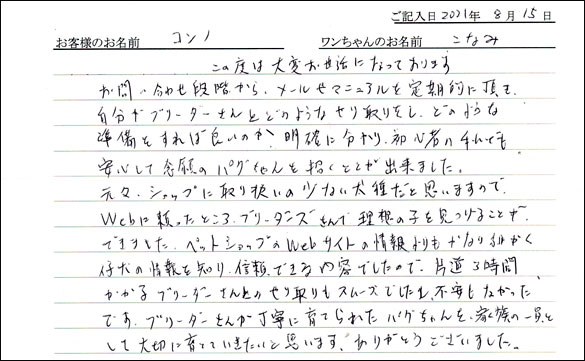 ご記入日 2021年 8月 15日
お客様のお名前 コンノ ワンちゃんのお名前 こなみ
この度は大変お世話になっております
お問い合わせ段階から、メールやマニュアルを定期的に頂き、
自分がブリーダーさんとどのようなやり取りをし、どのような
準備をすれば良いのか?明確に分かり、初心者の私でも
安心して念願のパグちゃんを招くことが出来ました。
元々、ショップに取り扱いの少ない犬種だと思いますので、
Webに頼ったところ、ブリーダーズさんで理想の子を見つけることが、
できました。ペットショップのWebサイトの情報よりもかなり細かく
仔犬の情報を知り、信頼できる内容でしたので、片道3時間
かかるブリーダーさんとのやり取りもスムーズでしたし、不安もなかった
です。ブリーダーさんが丁寧に育てられたパグちゃんを、家族の一員と
して大切に育てていきたいと思います。ありがとうございました。